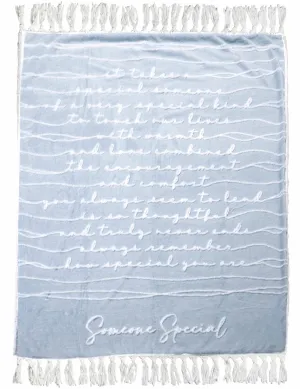 it takes a
special someone
of a very special kind
to touch our lives
with warmth
and love combined
the encouragement
and comfort
you always seem to lend
is so thoughtful
and truly never ends
always remember
how special you are
Someone Special